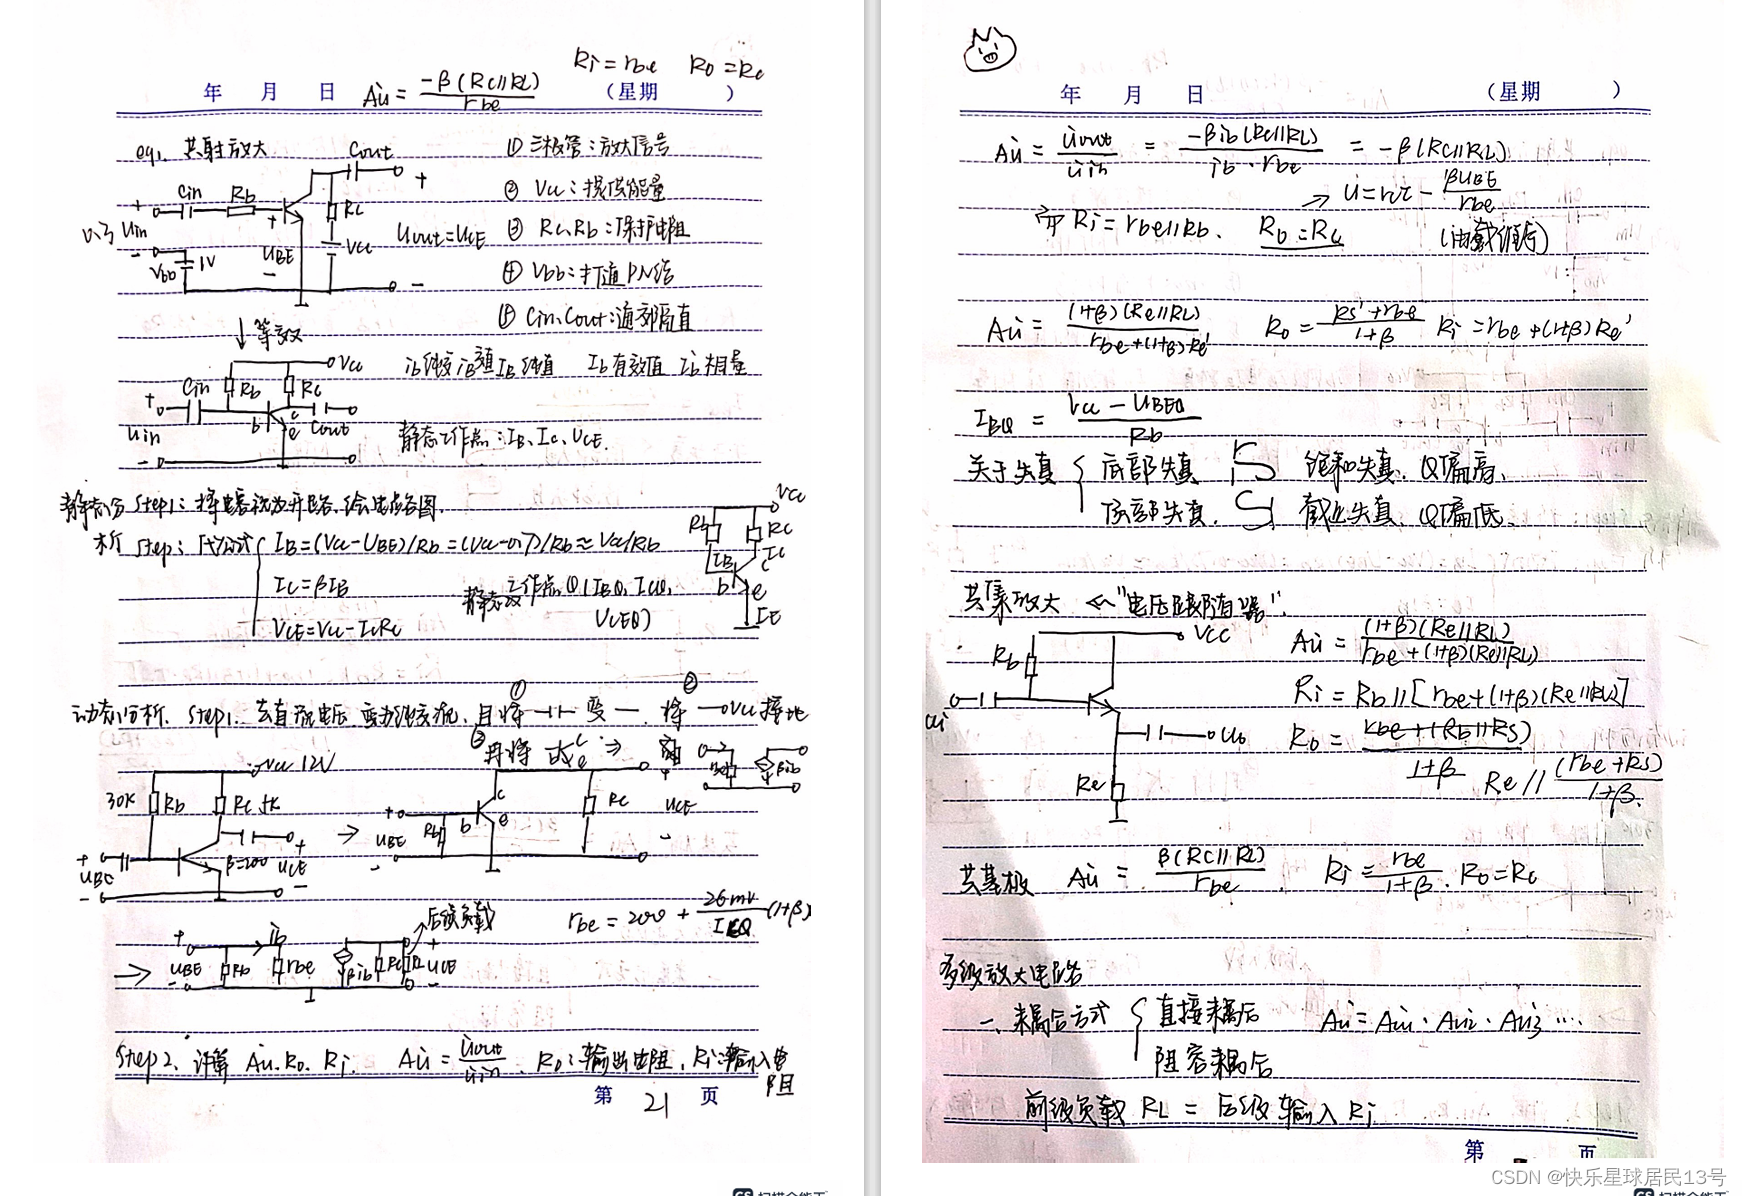 Ri = rbe Ro = Rc
年 月 日 Au = -β(Rc//RL)/rbe (星期 )
eg1. 共射放大
Cout
① 三极管：放大信号
② Vcc：提供能量
③ Rc、Rb：保护电阻
④ Vbb：打通PN结
⑤ Cin、Cout：通交隔直
Cin Rb Rc Vcc
+ Uin -
Vbb 1V
+ UBE -
Uout = UCE
+ -
↓等效
Vcc
Cin Rb Rc
+ Uin -
b c e Cout
ib IB Ib有效值 相量
静态工作点：IB、Ic、VCE.
静态分析 Step1：将电容视为开路、绘电路图.
Step：代公式 IB=(Vcc-UBE)/Rb=(Vcc-0.7)/Rb≈Vcc/Rb
Ic=βIB
VCE=Vcc-IcRc
静态工作点Q(IBQ, ICQ, VCEQ)
Vcc
Rb Rc
IB Ic
b c e
IE
动态分析. Step1. 去直流电压 且将 ⊣⊢ 变 一. ② 将 —oVcc接地
① ③ 再将 c b e ⇒ βib
Vcc 12V
30K Rb Rc 1K
+ UBE -
β=200 + UCE -
→ + UBE - Rb b c e Rc + UCE -
→ + UBE - Rb ib rbe βib Rc + UCE -
后级负载
rbe = 200 + 26mV/IEQ (1+β)
Step2. 计算 Au. Ro. Ri. Au = Uout/Uin . Ro：输出电阻, Ri：输入电阻
第 21 页
年 月 日 (星期 )
Au = Uout/Uin = -βib(Rc//RL)/(ib·rbe) = -β(Rc//RL)
βUBE/rbe
Ri = rbe//Rb. Ro = Rc
Au = (1+β)(Re//RL)/(rbe+(1+β)Re') Ro = (Rs'+rbe)/(1+β) Ri = rbe+(1+β)Re'
IBQ = (Vcc - UBEQ)/Rb
关于失真 { 底部失真 饱和失真. Q偏高.
顶部失真. 截止失真. Q偏低.
共集放大 "电压跟随器".
Vcc
Rb
Ui
Uo
Re
Au = (1+β)(Re//RL)/(rbe+(1+β)(Re//RL))
Ri = Rb//[rbe+(1+β)(Re//RL)]
Ro = (rbe+(Rb//Rs))/(1+β) Re//(rbe+Rs)/(1+β).
共基极 Au = β(Rc//RL)/rbe . Ri = rbe/(1+β) . Ro=Rc
多级放大电路
一、耦合方式 { 直接耦合
阻容耦合
Au = Au1 · Au2 · Au3 ····
前级负载 RL = 后级输入 Ri
第 页
CSDN @快乐星球居民13号